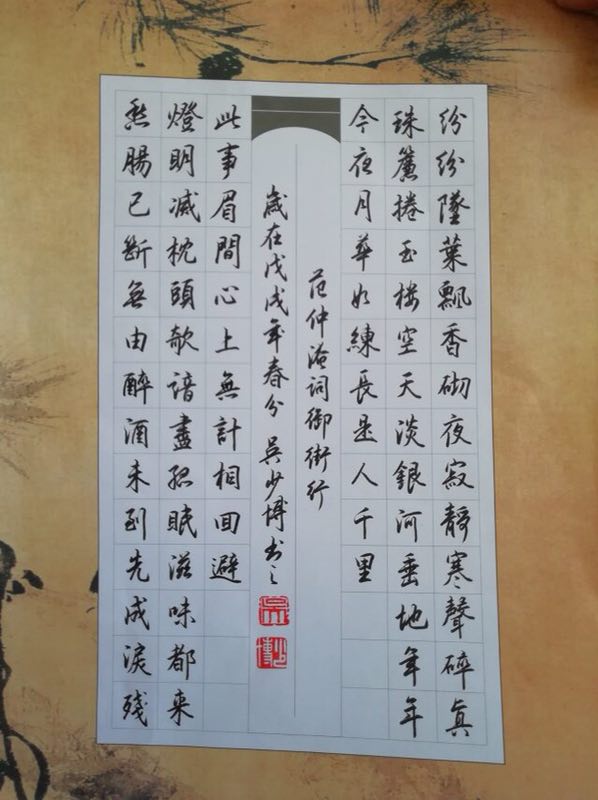 紛紛墜葉飄香砌夜寂靜寒聲碎真
珠簾捲玉楼空天淡銀河垂地年年
今夜月華如練長是人千里
愁腸已斷無由醉酒未到先成淚殘
燈明滅枕頭欹諳盡孤眠滋味都来
此事眉間心上無計相回避
范仲淹詞御街行
歲在戊戌年春分 吳少博书之
吳
少博